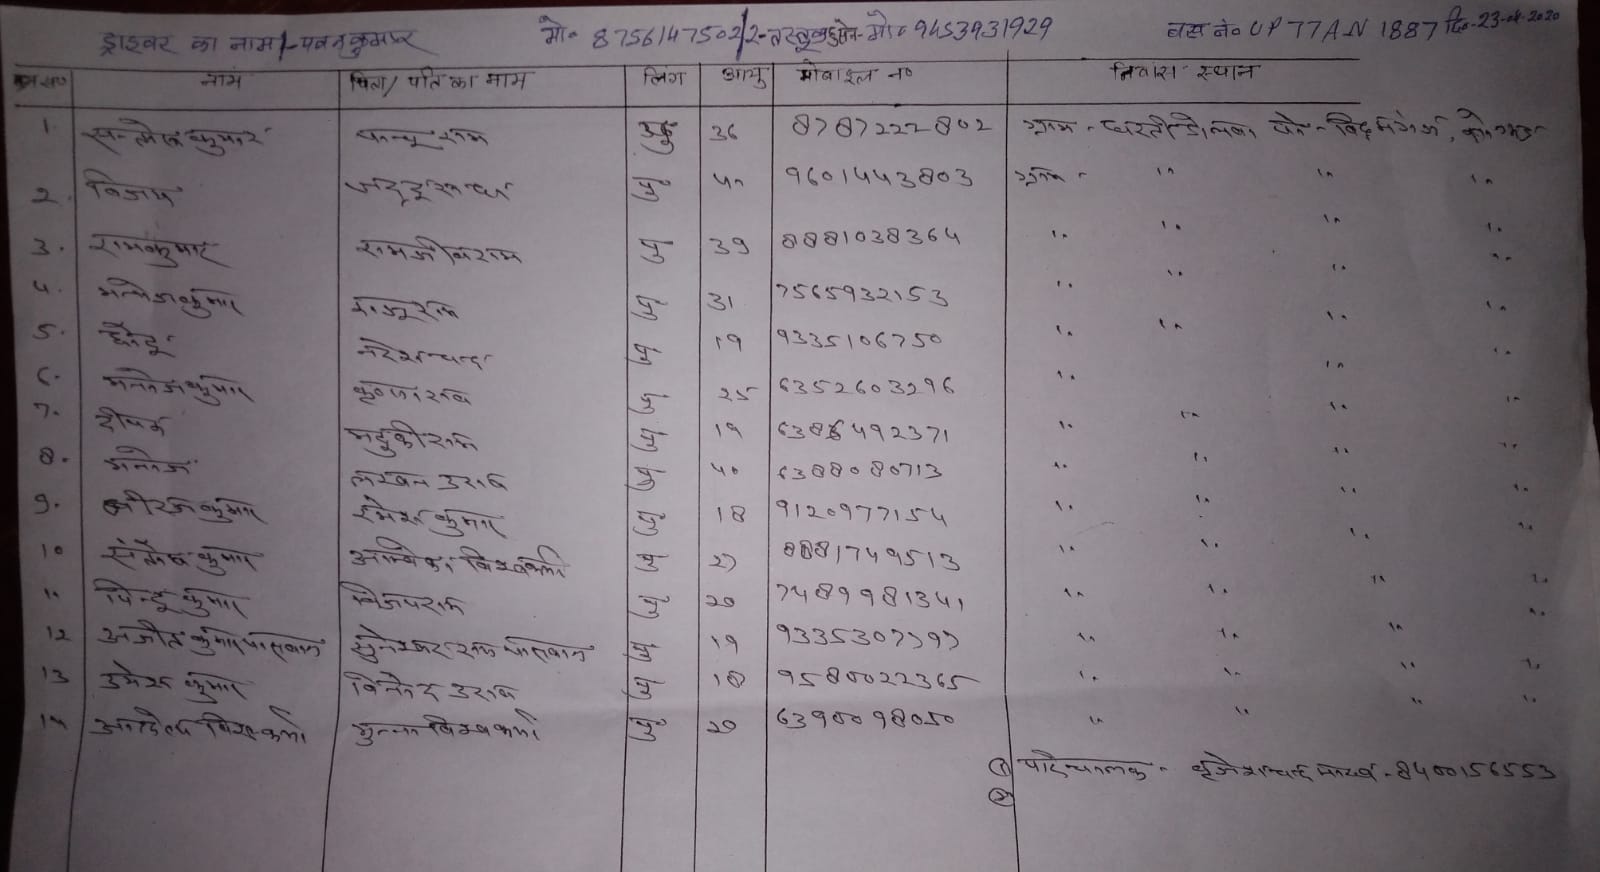 ड्राइवर का नाम/-पवनकुमार मो० 8756147502/2- मो० 9453931929 बस नं० UP 77AN 1887 दि०-23-04-2020
क्र०सं० नाम पिता/पति का नाम लिंग आयु मोबाइल न० निवास स्थान
1. सन्तोष कुमार राम पु 36 8787222802 ग्राम -
2. विजय पु 40 9601443803 ग्राम - " " "
3. रामकुमार रामजीवराम पु 39 8881038364 " " " "
4. कुमार राजूराम पु 31 7565932153 " " " "
5. नरेशचन्द्र पु 19 9335106750 " " " "
6. मनोजकुमार पु 25 6352603296 " " "
7. दीपक राम पु 19 6386492371 " " " "
8. मनोज लखन उराव पु 40 6388080713 " " " "
9. धीरज कुमार रमेश कुमार पु 18 9120977154 " " " "
10 संतोष कुमार अम्बिका विश्वकर्मा पु 27 8881749513 " " " "
11. पिन्टू कुमार विजयराम पु 20 7489981341 " " " "
12 अजीत कुमार पासवान मुनेश्वर राम पासवान पु 19 9335307797 " " " "
13 उमेश कुमार विनोद उराव पु 18 9580022365 " " "
14 विश्वकर्मा मुन्ना विश्वकर्मा पु 20 6390098050 " " " "
① परिचालक - बृजेशचन्द्र - 8400156553
②